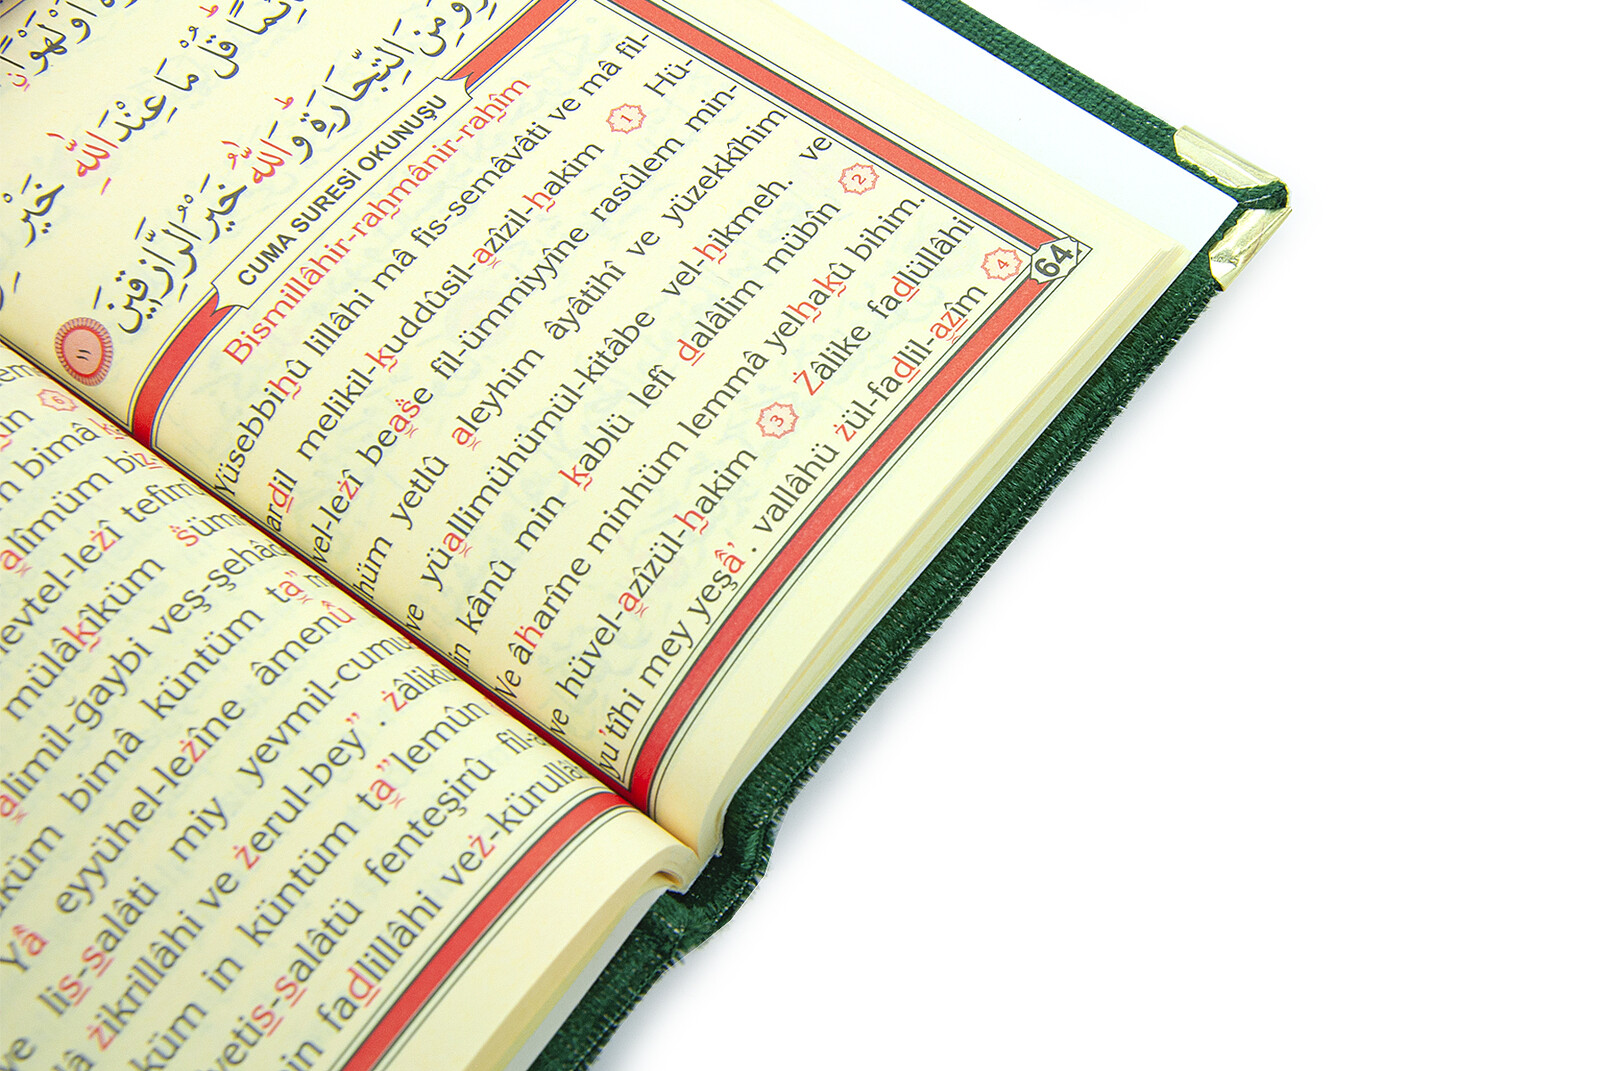 أَوْ لَهْوًا
قُلْ مَا عِنْدَ اللّٰهِ خَيْرٌ
وَمِنَ التِّجَارَةِ وَاللّٰهُ خَيْرُ الرَّازِقِينَ ١١
CUMA SURESİ OKUNUŞU
Bismillâhir-raḥmânir-raḥîm
Yüsebbiḥû lillâhi mâ fis-semâvâti ve mâ fil-
arḍil melikil-ḳuddûsil-azîzil-ḥakim 1 Hü-
vel-leżî beaṡe fil-ümmiyyîne rasûlem min-
hüm yetlû aleyhim âyâtihî ve yüzekkîhim
ve yüallimühümül-kitâbe vel-ḥikmeh. ve
in kânû min ḳablü lefî ḍalâlim mübîn 2
Ve âḣarîne minhüm lemmâ yelḥaḳû bihim.
ve hüvel-azîzül-ḥakim 3 Żâlike faḍlüllâhi
yu'tîhi mey yeşâ'. vallâhü żül-faḍlil-aẓîm 4
64
6
bimâ
alîmüm
levtel-leżî
mülâḳîküm ṡüm
alimil-ğaybi veş-şehâd
küm bimâ küntüm ta"
Yâ eyyühel-leżîne âmenû
liṣ-ṣalâti miy yevmil-cumu
żikrillâhi ve żerul-bey". żâlikü
küm in küntüm ta"lemûn
yetiṣ-ṣalâtü fenteşirû fil-
min faḍlillâhi veż-kürullâ